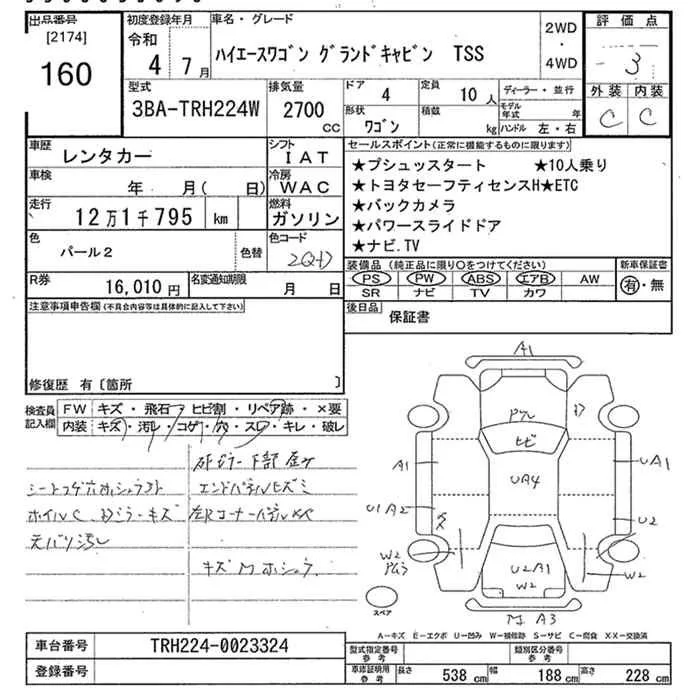 出品番号
[2174]
160
初度登録年月
令和
4 7月
車名・グレード
ハイエースワゴン グランドキャビン TSS
2WD
・
4WD
評価点
3
外装 内装
C C
型式
3BA-TRH224W
排気量
2700
CC
ドア
4
定員
10人
形状
ワゴン
積載
kg
ディーラー・並行
モデル年式 年
ハンドル 左・右
車歴
レンタカー
シフト
IAT
車検
年 月( 日)
冷房
WAC
走行
12万1千795 km
燃料
ガソリン
色
パール2
色替
色コード
R券
16,010円
名変通知期限
月 日
セールスポイント(正常に機能するものに限ります)
★プシュッスタート ★10人乗り
★トヨタセーフティセンスH★ETC
★バックカメラ
★パワースライドドア
★ナビ.TV
装備品(純正品に限り○をつけてください)
PS PW ABS エアB AW
SR ナビ TV カワ
新車保証書
有・無
注意事項申告欄(不具合内容等は具体的に記入して下さい)
後日品
保証書
修復歴 有〔箇所 〕
検査員
記入欄
FW キズ・飛石・ヒビ割・リペア跡・×要
内装 キズ・汚レ・コゲ・穴・スレ・キレ・破レ
エンドパネルヒズミ
A1
ヒビ
A1
UA4
UA1
U1 A2
U2
W2
U2A1
W2
W2
A3
スペア
A-キズ E-エクボ U-凹み W-補修跡 S-サビ C-腐食 XX-交換済
車台番号
TRH224-0023324
登録番号
型式指定番号
参考
類別区分番号
参考
車庫証明用
参考
長さ 538 cm 幅 188 cm 高さ 228 cm